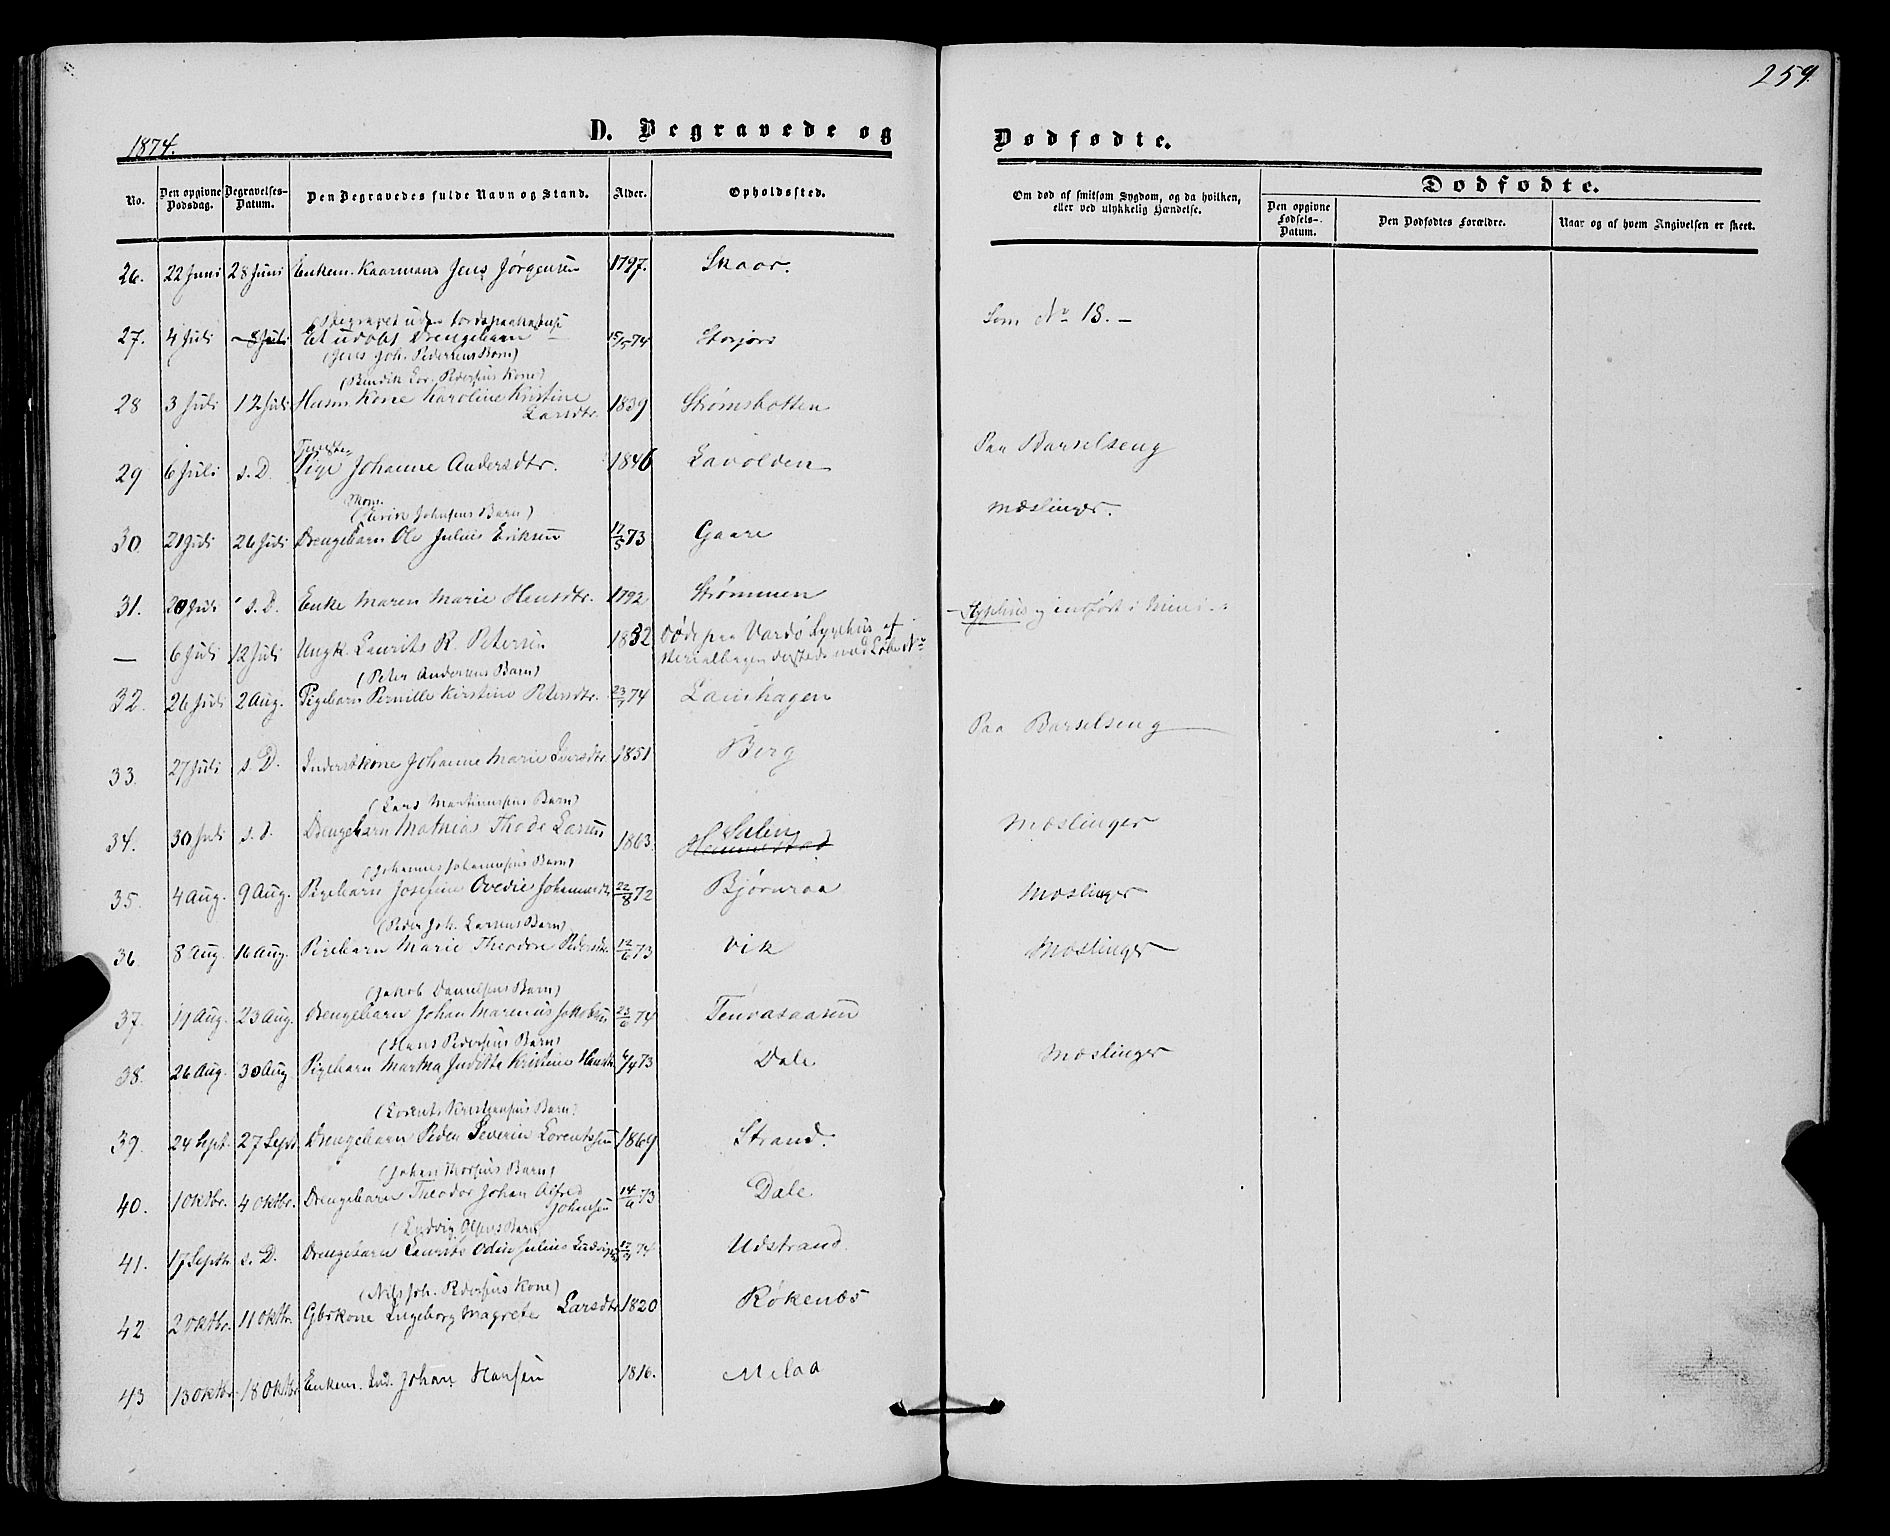 259.
1874.
D. Begravede og
Dødfødte.
No.
Den opgivne Dødsdag.
Begravelses-Datum.
Den Begravedes fulde Navn og Stand.
Alder.
Opholdssted.
Om død af smitsom Sygdom, og da hvilken, eller ved ulykkelig Hændelse.
Dødfødte.
Den opgivne Fødsels-Datum.
Den Dødfødtes Forældre.
Naar og af hvem Angivelsen er skeet.
26. 22 Juni 28 Juni Enkem. Kaarmand Jens Jørgensen 1797. Skaar.
27. 4 Juli 8 Juli Et udøbt Drengebarn 15/5 74 Storjord Som No 18. —
(Jens Joh. Pedersens Barn)
(Bendik Lor. Pedersens Kone)
28 3 Juli 12 Juli Husm Kone Karoline Kristine Larsdtr. 1839 Strømsbotten
29 6 Juli s. D. Pige Johanne Andersdtr. 1846 Lavolden Paa Barselseng
(Erik Johnsens Barn)
30 21 Juli 26 Juli Drengebarn Ole Julius Eriksen 17/5 73 Gaare Mæslinger.
31. 20 Juli s. D. Enke Maren Marie Hansdtr. 1792 Strømmen
— 6 Juli 12 Juli Ungk. Laurits R. Petersen 1852 Døde paa Vardø Sygehus af
(Peter Andersens Barn)
32. 26 Juli 2 Aug. Pigebarn Pernille Kirstine Petersdtr. 23/7 74 Laushagen
33. 27 Juli s. D. Inderstkone Johanne Marie Iversdtr. 1851 Berg Paa Barselseng
(Lars Martinussens Barn)
34. 30 Juli s. D. Drengebarn Mathias Thode Larsen 1863. Salen Mæslinger
(Johannes Johannesens Barn)
35. 4 Aug. 9 Aug. Pigebarn Josefine Ovedie Johannesdtr 22/8 72 Bjørnraa Mæslinger
(Peder Joh. Larsens Barn)
36 8 Aug. 16 Aug. Pigebarn Marie Theodore Pedersdtr. 12/6 73 Vik Mæslinger
(Jakob Danielsens Barn)
37. 11 Aug. 23 Aug. Drengebarn Johan Marenus Jakobsen 23/6 74 Tennasaasen
(Hans Pedersens Barn)
38. 26 Aug. 30 Aug Pigebarn Martha Juditte Kristine Hansdtr 6/4 73 Dale Mæslinger
(Lorents Kristiansens Barn)
39. 24 Sept. 27 Sept. Drengebarn Peder Severin Lorentssen 1869 Strand.
(Johan Mørsens Barn)
40. 1 Oktbr. 4 Oktbr. Drengebarn Theodor Johan Alfred Johansen 14/6 73 Dale
(Ludvig Olsens Barn)
41. 17 Septb. s. D. Drengebarn Laurits Odin Julius Ludvigsen Udstrand
(Nils Joh. Pedersens Kone)
42 2 Oktbr. 11 Oktbr. Gbrkone Ingeborg Magrete Larsdtr 1820 Røkenæs
43 13 Oktbr. 18 Oktbr Enkem. Ind. Johan Hansen 1816. Melaa